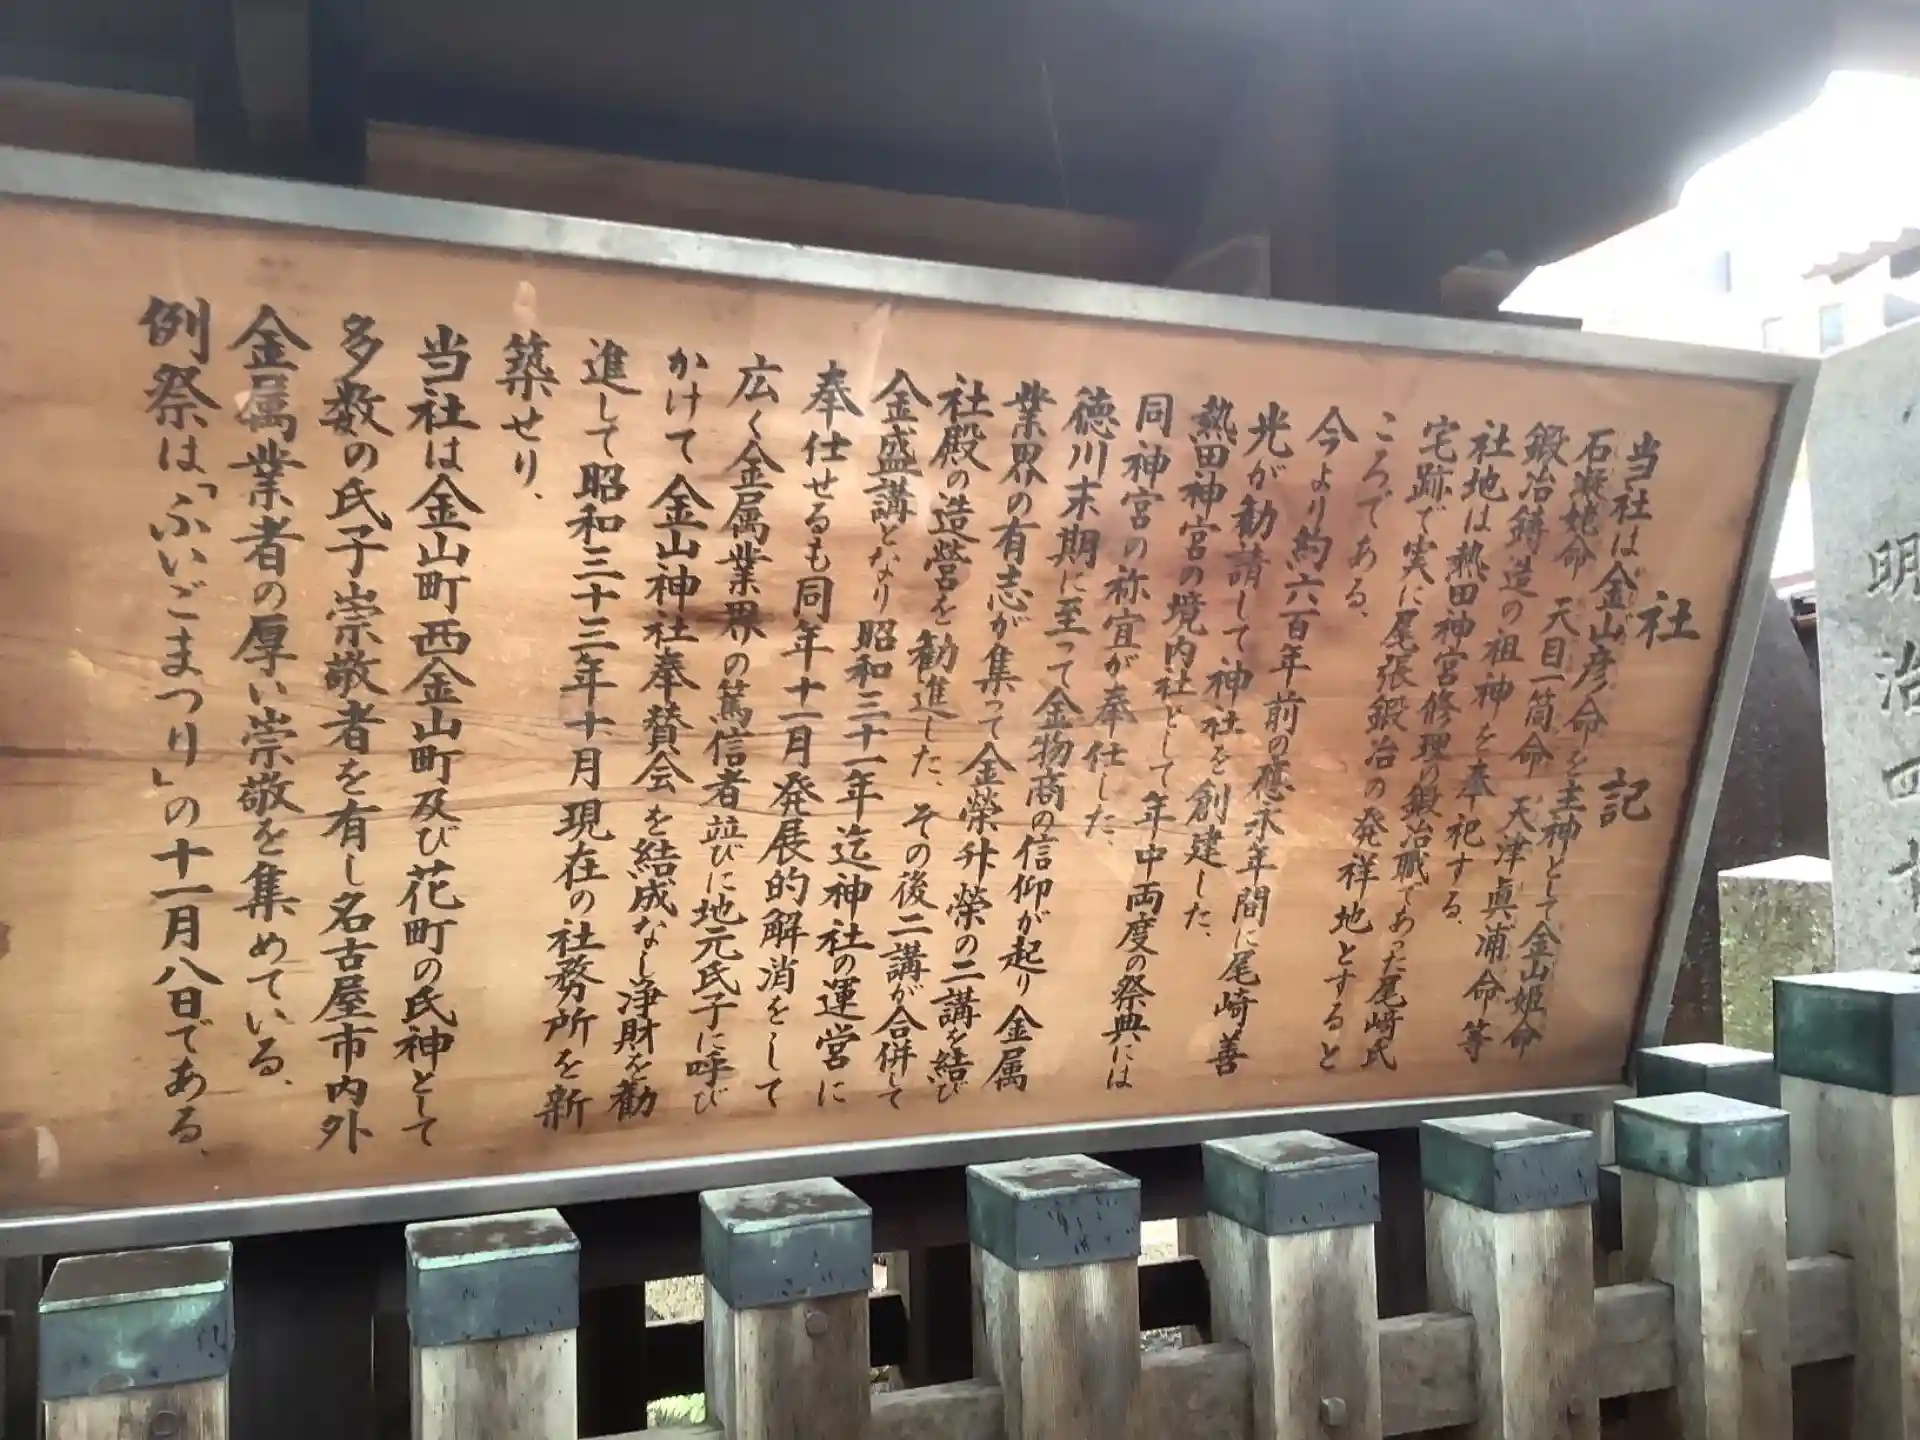 社記
当社は金山彦命を主神として金山姫命
石凝姥命 天目一筒命 天津真浦命等
鍛冶鋳造の祖神を奉祀する、
社地は熱田神宮修理の鍛冶職であった尾崎氏
宅跡で実に尾張鍛冶の発祥地とすると
ころである、
今より約六百年前の應永年間に尾崎善
光が勧請して神社を創建した、
熱田神宮の境内社として年中両度の祭典には
同神宮の祢宜が奉仕した、
徳川末期に至って金物商の信仰が起り金属
業界の有志が集って金榮升榮の二講を結び
社殿の造営を勧進した、その後二講が合併して
金盛講となり昭和三十一年迄神社の運営に
奉仕せるも同年十一月発展的解消をして
広く金属業界の篤信者並びに地元氏子に呼び
かけて金山神社奉賛会を結成なし浄財を勧
進して昭和三十三年十月現在の社務所を新
築せり、
当社は金山町西金山町及び花町の氏神として
多数の氏子崇敬者を有し名古屋市内外
金属業者の厚い崇敬を集めている、
例祭は「ふいごまつり」の十一月八日である、
明治四